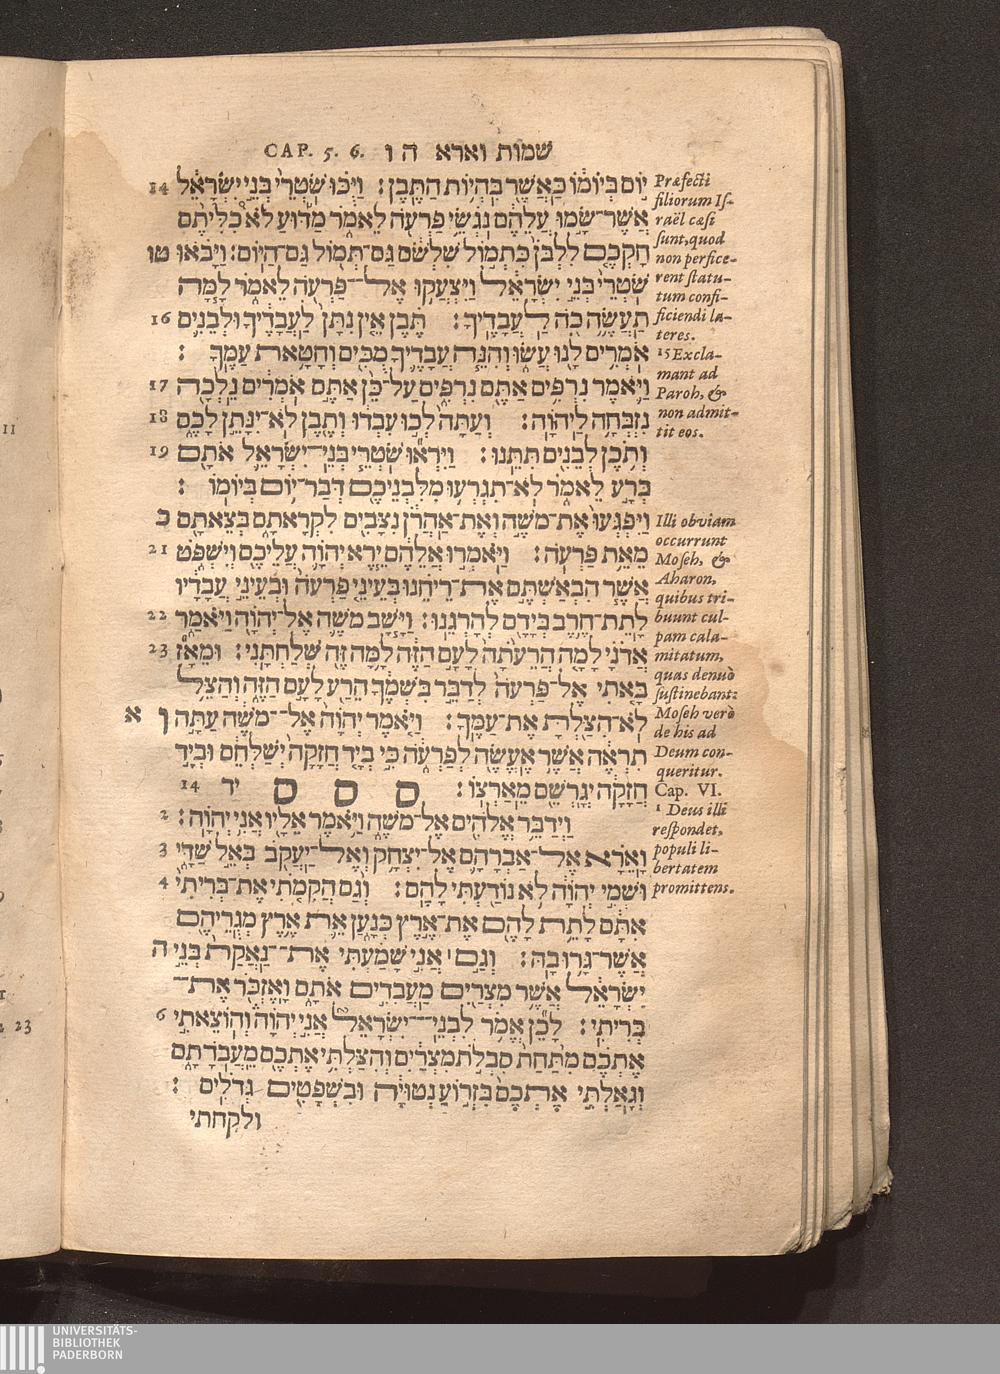 CAP. 5. 6. שמות וארא ה ו
יוֹם בְּיוֹמוֹ כַּאֲשֶׁר בִּהְיוֹת הַתֶּבֶן׃ וַיֻּכּוּ שֹׁטְרֵי בְּנֵי יִשְׂרָאֵל 14
אֲשֶׁר־שָׂמוּ עֲלֵהֶם נֹגְשֵׂי פַרְעֹה לֵאמֹר מַדּוּעַ לֹא כִלִּיתֶם
חָקְכֶם לִלְבֹּן כִּתְמוֹל שִׁלְשֹׁם גַּם־תְּמוֹל גַּם־הַיּוֹם׃ וַיָּבֹאוּ טו
שֹׁטְרֵי בְּנֵי יִשְׂרָאֵל וַיִּצְעֲקוּ אֶל־־פַּרְעֹה לֵאמֹר לָמָּה
תַעֲשֶׂה כֹה לַעֲבָדֶיךָ׃ תֶּבֶן אֵין נִתָּן לַעֲבָדֶיךָ וּלְבֵנִים 16
אֹמְרִים לָנוּ עֲשׂוּ וְהִנֵּה עֲבָדֶיךָ מֻכִּים וְחָטָאת עַמֶּךָ׃
וַיֹּאמֶר נִרְפִּים אַתֶּם נִרְפִּים עַל־כֵּן אַתֶּם אֹמְרִים נֵלְכָה 17
נִזְבְּחָה לַיהֹוָה׃ וְעַתָּה לְכוּ עִבְדוּ וְתֶבֶן לֹא־יִנָּתֵן לָכֶם 18
וְתֹכֶן לְבֵנִים תִּתֵּנוּ׃ וַיִּרְאוּ שֹׁטְרֵי בְּנֵי־יִשְׂרָאֵל אֹתָם 19
בְּרָע לֵאמֹר לֹא־תִגְרְעוּ מִלִּבְנֵיכֶם דְּבַר־יוֹם בְּיוֹמוֹ׃
וַיִּפְגְּעוּ אֶת־מֹשֶׁה וְאֶת־אַהֲרֹן נִצָּבִים לִקְרָאתָם בְּצֵאתָם כ
מֵאֵת פַּרְעֹה׃ וַיֹּאמְרוּ אֲלֵהֶם יֵרֶא יְהוָֹה עֲלֵיכֶם וְיִשְׁפֹּט 21
אֲשֶׁר הִבְאַשְׁתֶּם אֶת־רֵיחֵנוּ בְּעֵינֵי פַרְעֹה וּבְעֵינֵי עֲבָדָיו
לָתֶת־חֶרֶב בְּיָדָם לְהָרְגֵנוּ׃ וַיָּשָׁב מֹשֶׁה אֶל־יְהוָֹה וַיֹּאמַר 22
אֲדֹנָי לָמָה הֲרֵעֹתָה לָעָם הַזֶּה לָמָּה זֶּה שְׁלַחְתָּנִי׃ וּמֵאָז 23
בָּאתִי אֶל־פַּרְעֹה לְדַבֵּר בִּשְׁמֶךָ הֵרַע לָעָם הַזֶּה וְהַצֵּל
לֹא־הִצַּלְתָּ אֶת־עַמֶּךָ׃ וַיֹּאמֶר יְהוָֹה אֶל־־מֹשֶׁה עַתָּה ו א
תִרְאֶה אֲשֶׁר אֶעֱשֶׂה לְפַרְעֹה כִּי בְיָד חֲזָקָה יְשַׁלְּחֵם וּבְיָד
חֲזָקָה יְגָרְשֵׁם מֵאַרְצוֹ׃ ס ס ס יד 14
וַיְדַבֵּר אֱלֹהִים אֶל־מֹשֶׁה וַיֹּאמֶר אֵלָיו אֲנִי יְהוָֹה׃ 2
וָאֵרָא אֶל־אַבְרָהָם אֶל־יִצְחָק וְאֶל־יַעֲקֹב בְּאֵל שַׁדָּי 3
וּשְׁמִי יְהוָֹה לֹא נוֹדַעְתִּי לָהֶם׃ וְגַם הֲקִמֹתִי אֶת־בְּרִיתִי 4
אִתָּם לָתֵת לָהֶם אֶת־אֶרֶץ כְּנָעַן אֵת אֶרֶץ מְגֻרֵיהֶם
אֲשֶׁר־גָּרוּ בָהּ׃ וְגַם׀ אֲנִי שָׁמַעְתִּי אֶת־־נַאֲקַת בְּנֵי ה
יִשְׂרָאֵל אֲשֶׁר מִצְרַיִם מַעֲבִדִים אֹתָם וָאֶזְכֹּר אֶת־
בְּרִיתִי׃ לָכֵן אֱמֹר לִבְנֵי־־יִשְׂרָאֵל אֲנִי יְהוָֹה וְהוֹצֵאתִי 6
אֶתְכֶם מִתַּחַת סִבְלֹת מִצְרַיִם וְהִצַּלְתִּי אֶתְכֶם מֵעֲבֹדָתָם
וְגָאַלְתִּי אֶתְכֶם בִּזְרוֹעַ נְטוּיָה וּבִשְׁפָטִים גְּדֹלִים׃
ולקחתי
Præfecti
filiorum Is-
raël cæsi
sunt, quod
non perfice-
rent statu-
tum confi-
ficiendi la-
teres.
15 Excla-
mant ad
Paroh, &
non admit-
tit eos.
Illi obviam
occurrunt
Moseh, &
Aharon,
quibus tri-
buunt cul-
pam cala-
mitatum,
quas denuò
sustinebant:
Moseh verò
de his ad
Deum con-
queritur.
Cap. VI.
1 Deus illi
respondet,
populi li-
bertatem
promittens.
11
23
UNIVERSITÄTS-
BIBLIOTHEK
PADERBORN